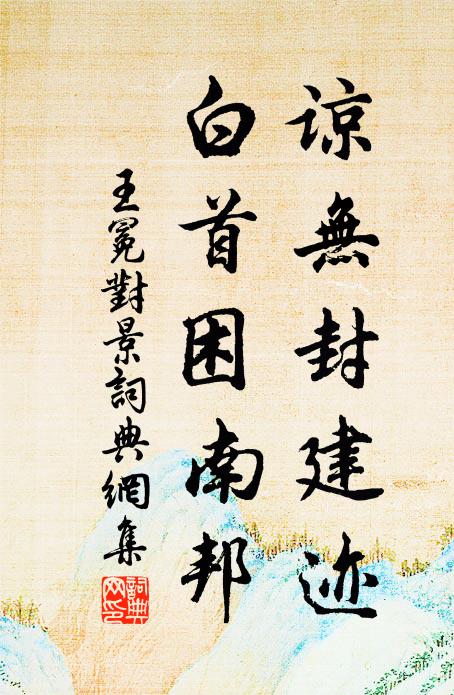 谅無封建迹
白首困南邦
王冕對景詞典網集
詞典网印